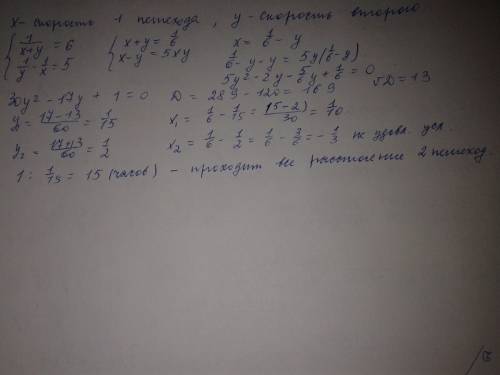 x - скорость 1 пешехода, y - скорость второго.
{ 1/(x+y) = 6   { x+y = 1/6   x = 1/6 - y
{ 1/y - 1/x = 5   { x-y = 5xy   1/6 - y - y = 5y(1/6 - y)
5y² - 2y - 5/6 y + 1/6 = 0
30y² - 17y + 1 = 0   D = 289 - 120 = 169   √D = 13
y₁ = (17-13)/60 = 1/15   x₁ = 1/6 - 1/15 = (5-2)/30 = 1/10
y₂ = (17+13)/60 = 1/2   x₂ = 1/6 - 1/2 = 1/6 - 3/6 = - 1/3 не удовл. усл.
1 : 1/15 = 15 (часов) - проходит все расстояние 2 пешеход.